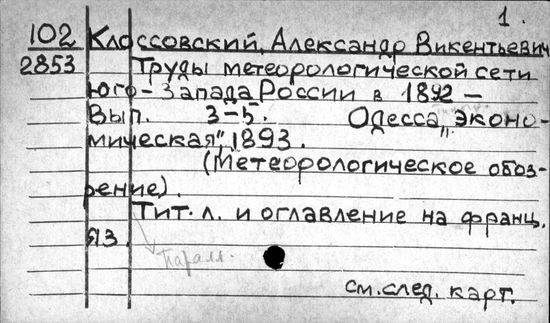 1.
102 Клоссовский, Александр Викентьевич
2853 Труды метеорологической сети
Юго-Запада России в 1892 –
Вып. 3-5. Одесса, „эконо-
мическая", 1893.
(Метеорологическое обоз-
рение).
Тит. л. и оглавление на франц.
яз.
Паралл.
см. след. карт.